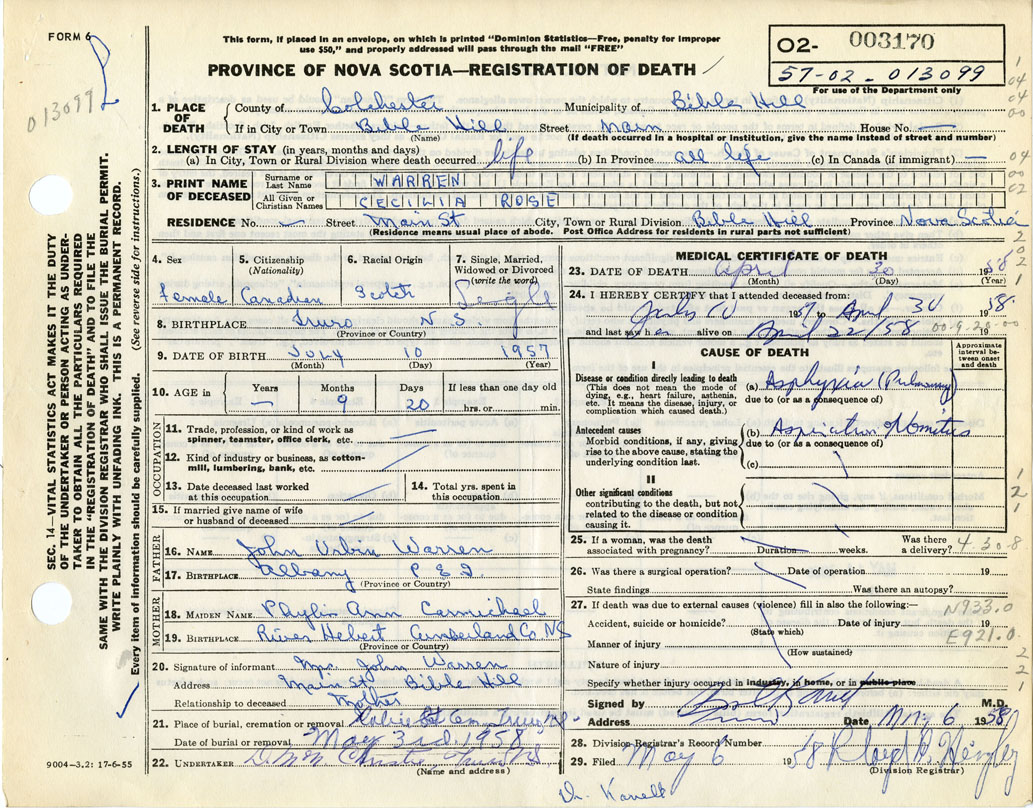 FORM 6
This form, if placed in an envelope, on which is printed "Dominion Statistics—Free, penalty for improper
use $50," and properly addressed will pass through the mail "FREE"
02- 003170
57-02-013099
For use of the Department only
013099
PROVINCE OF NOVA SCOTIA—REGISTRATION OF DEATH
1. PLACE OF DEATH County of Colchester Municipality of Bible Hill
If in City or Town Bible Hill Street Main House No. —
(Name) (If death occurred in a hospital or institution, give the name instead of street and number)
2. LENGTH OF STAY (in years, months and days)
(a) In City, Town or Rural Division where death occurred life (b) In Province all life (c) In Canada (if immigrant) —
3. PRINT NAME OF DECEASED Surname or Last Name WARREN
All Given or Christian Names CECILIA ROSE
RESIDENCE No. — Street Main St City, Town or Rural Division Bible Hill Province Nova Scotia
(Residence means usual place of abode. Post Office Address for residents in rural parts not sufficient)
SEC. 14—VITAL STATISTICS ACT MAKES IT THE DUTY
OF THE UNDERTAKER OR PERSON ACTING AS UNDER-
TAKER TO OBTAIN ALL THE PARTICULARS REQUIRED
IN THE "REGISTRATION OF DEATH" AND TO FILE THE
SAME WITH THE DIVISION REGISTRAR WHO SHALL ISSUE THE BURIAL PERMIT.
WRITE PLAINLY WITH UNFADING INK. THIS IS A PERMANENT RECORD.
Every item of information should be carefully supplied. (See reverse side for instructions.)
4. Sex 5. Citizenship (Nationality) 6. Racial Origin 7. Single, Married, Widowed or Divorced (write the word)
Female Canadian Scotch Single
8. BIRTHPLACE Truro N.S.
(Province or Country)
9. DATE OF BIRTH JULY 10 1957
(Month) (Day) (Year)
10. AGE in Years Months Days If less than one day old
— 9 20 hrs. or min.
OCCUPATION
11. Trade, profession or kind of work as
spinner, teamster, office clerk, etc.
12. Kind of industry or business, as cotton-
mill, lumbering, bank, etc.
13. Date deceased last worked
at this occupation
14. Total yrs. spent in
this occupation
15. If married give name of wife
or husband of deceased
FATHER
16. NAME John Warren
17. BIRTHPLACE Albany P.E.I.
(Province or Country)
MOTHER
18. MAIDEN NAME Phyllis Ann Carmichael
19. BIRTHPLACE River Hebert Cumberland Co NS
(Province or Country)
20. Signature of informant Mrs. John Warren
Address Main St Bible Hill
Relationship to deceased Mother
21. Place of burial, cremation or removal Cem Truro NS
Date of burial or removal May 3rd 1958
22. UNDERTAKER Christie Truro NS
(Name and address)
9004-3.2: 17-6-55
MEDICAL CERTIFICATE OF DEATH
23. DATE OF DEATH April 30 1958
(Month) (Day) (Year)
24. I HEREBY CERTIFY that I attended deceased from:
July 10 1957 to April 30 1958
and last saw her alive on April 22/58 19
00-9-20-00
CAUSE OF DEATH
Approximate interval between onset and death
I
Disease or condition directly leading to death
(This does not mean the mode of
dying, e.g., heart failure, asthenia,
etc. It means the disease, injury, or
complication which caused death.)
(a) Asphyxia (Pulmonary)
due to (or as a consequence of)
Antecedent causes
Morbid conditions, if any, giving
rise to the above cause, stating the
underlying condition last.
(b) Aspiration Vomitus
due to (or as a consequence of)
(c)
II
Other significant conditions
contributing to the death, but not
related to the disease or condition
causing it.
25. If a woman, was the death
associated with pregnancy? Duration weeks. Was there a delivery?
4-30-8
26. Was there a surgical operation? Date of operation 19
State findings Was there an autopsy?
27. If death was due to external causes (violence) fill in also the following:—
N933.0
Accident, suicide or homicide? Date of injury 19
(State which)
E921.0
Manner of injury
(How sustained)
Nature of injury
Specify whether injury occurred in industry, in home, or in public place
Signed by M.D.
Address Truro Date May 6 1958
28. Division Registrar's Record Number
29. Filed May 6 1958
(Division Registrar)